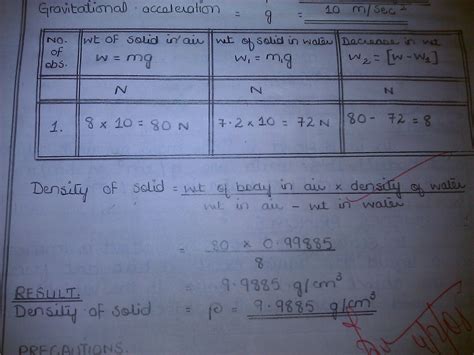 Gravitational acceleration = g = 10 m/sec²
NO. of obs.
wt of solid in air w = mg
wt of solid in water w₁ = m₁g
Decrease in wt w₂ = [w - w₁]
N N N
1. 8 x 10 = 80 N 7.2 x 10 = 72 N 80 - 72 = 8
Density of solid = wt of body in air x density of water
wt in air - wt in water
= 80 x 0.99885
8
= 9.9885 g/cm³
RESULT:
Density of solid = ρ = 9.9885 g/cm³
PRECAUTIONS.